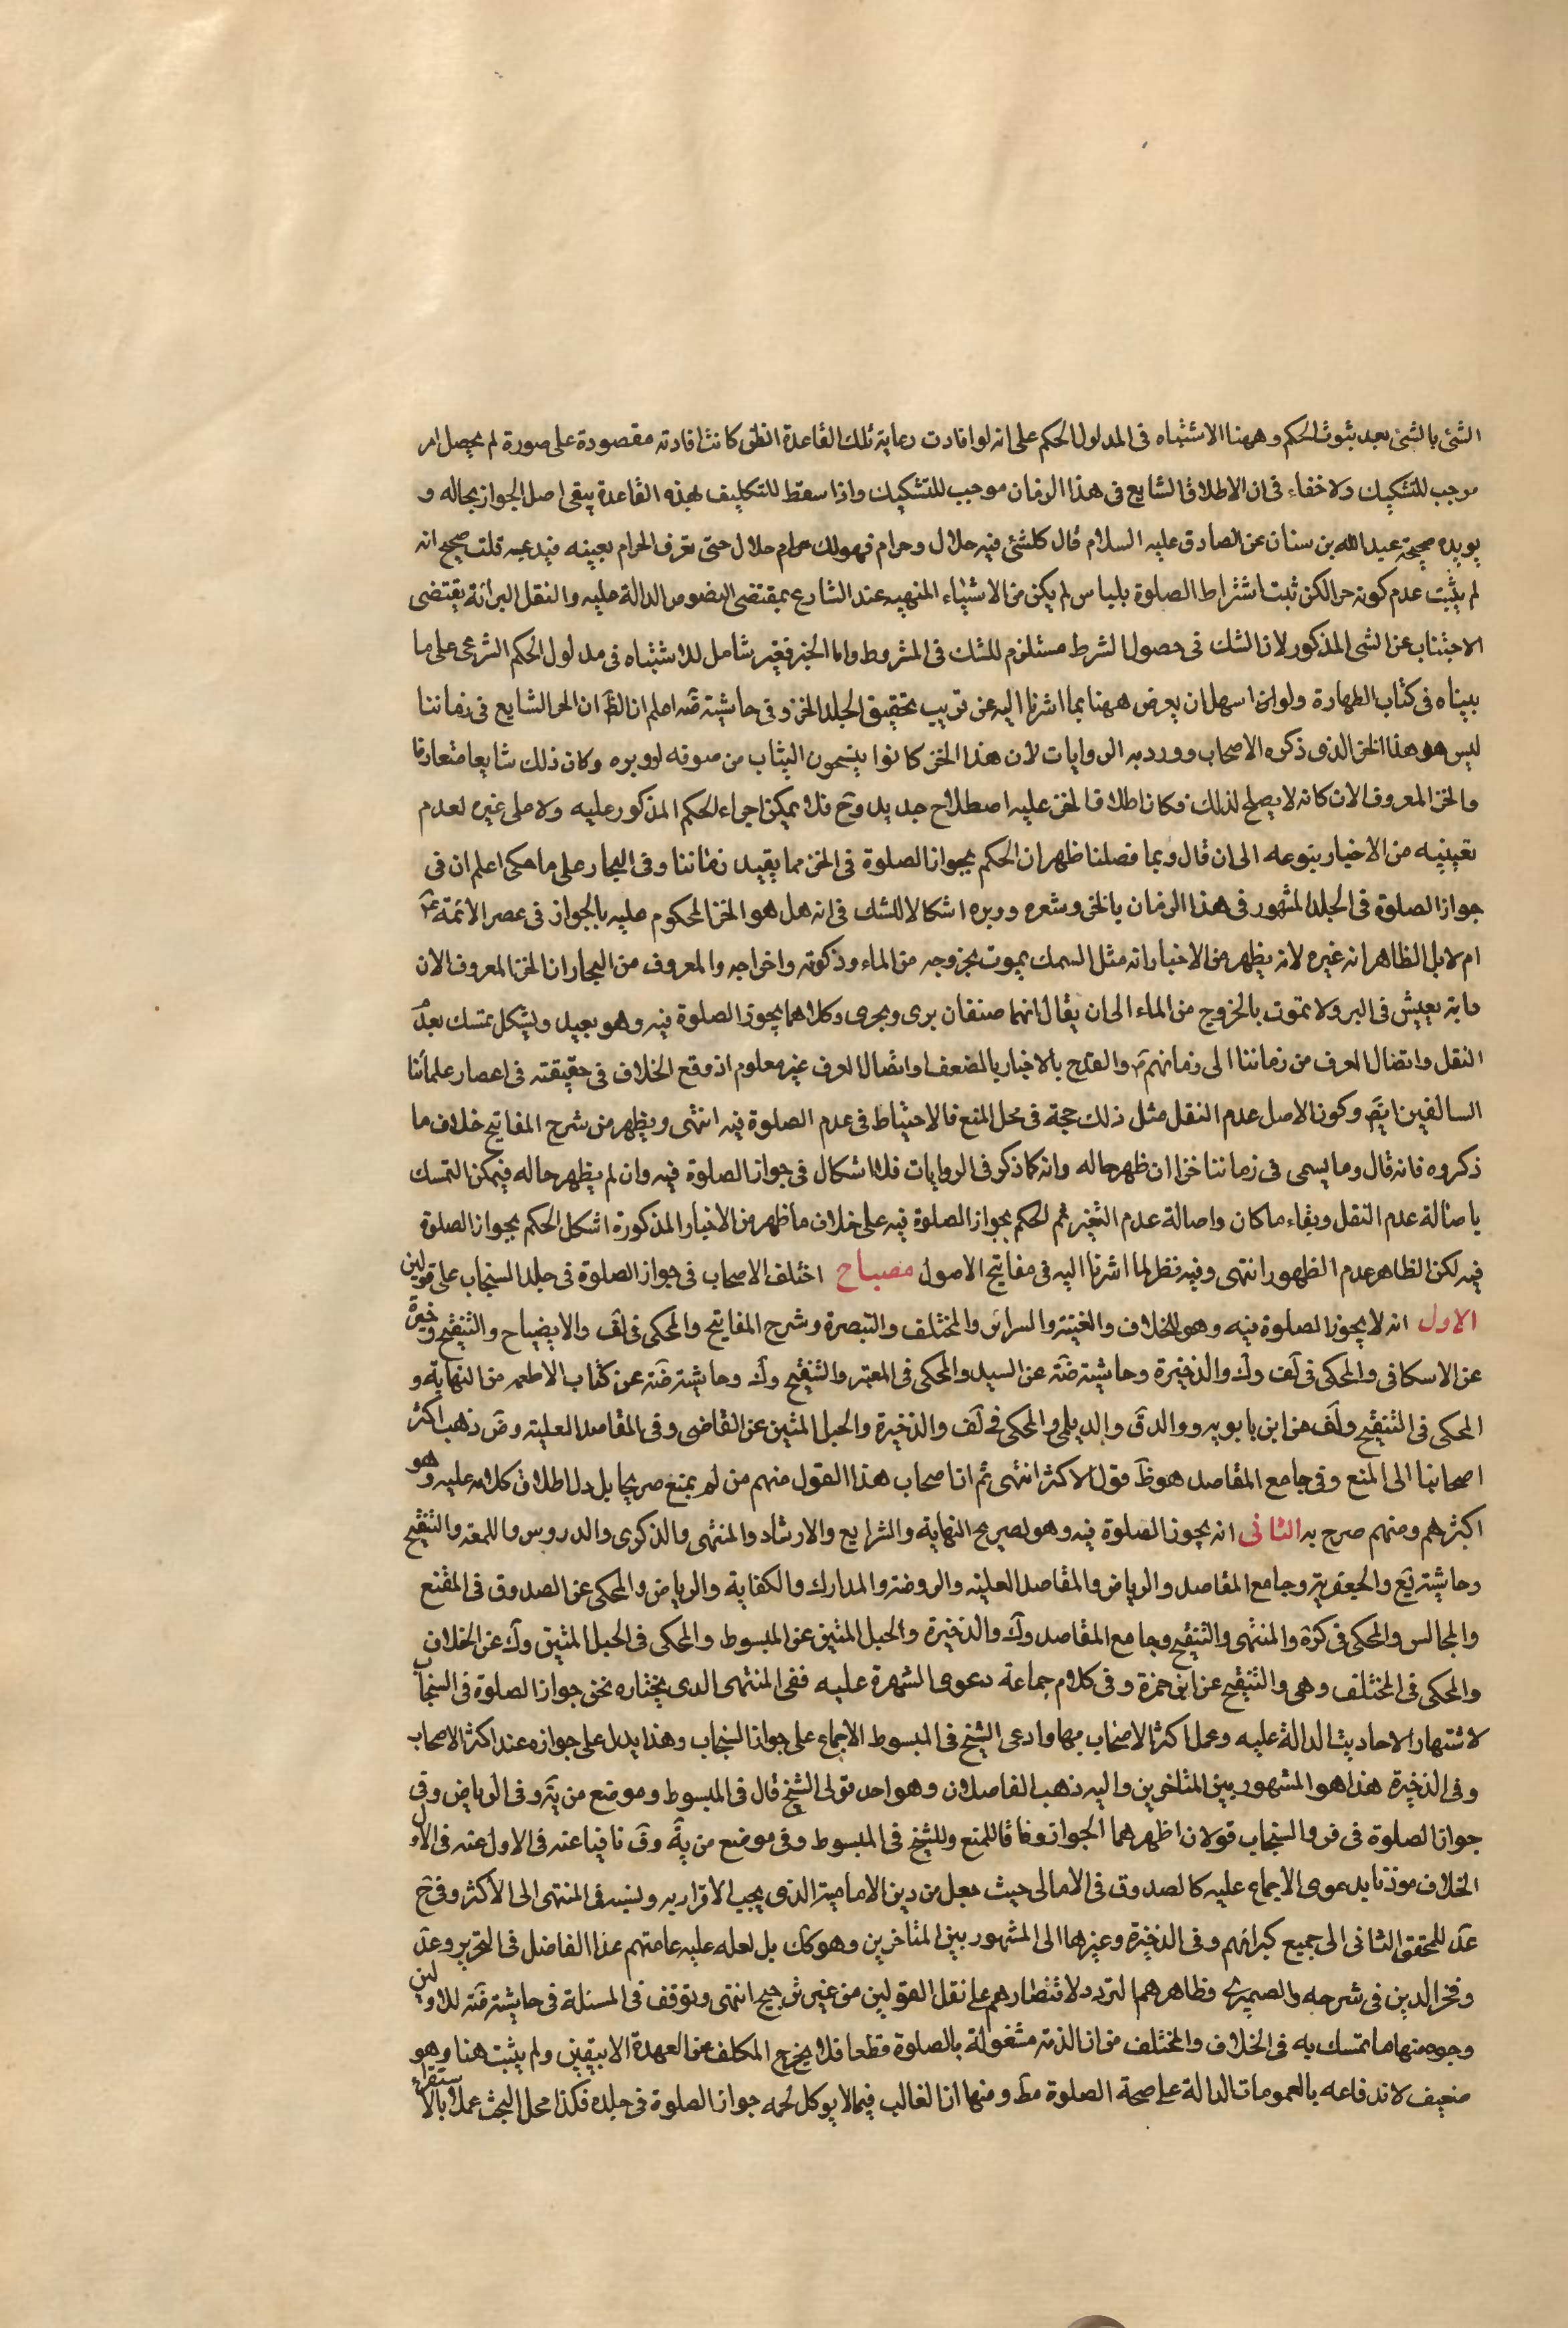 الشئ بالشئ بعد ثبوت الحكم وههنا الاشتباه فى المدلول الحكم على انه لو افادت رعاية تلك القاعدة الظن كانت افادته مقصودة على صورة لم يحصل امر
موجب للتشكيك ولا خفاء فى ان الاطلاق الشايع فى هذا الزمان موجب للتشكيك واذا سقط للتكليف بهذه القاعدة يبقى اصل الجواز بحاله و
يويده صحيحة عبد الله بن سنان عن الصادق عليه السلام قال كلشئ فيه حلال وحرام فهو لك حلال حتى تعرف الحرام بعينه فتدعه قلت صحيح انه
لم يثبت عدم كونه خز الكن ثبت اشتراط الصلوة بلباس لم يكن من الاشياء المنهيه عند الشارع بمقتضى النصوص الدالة عليه والنقل البرائة يقتضى
الاجتناب عن الشئ المذكور لان الشك فى حصول الشرط مستلزم للشك فى المشروط واما الخبر فغير شامل للاشتباه فى مدلول الحكم الشرعى على ما
بيناه فى كتاب الطهارة ولو لن اسهل ان يعرض ههنا بما اشرنا اليه عن قريب تحقيق الجلد الخز وفى حاشية قنه اعلم ان الظ ان الخز الشايع فى زماننا
ليس هو هذا الخز الذى ذكره الاصحاب وورد به الروايات لان هذا الخز كانوا ينسجون الثياب من صوفه او وبره وكان ذلك شايعا متعارفا
والخز المعروف الان كانه لا يصلح لذلك فكان اطلاق الخز عليه اصطلاح جديد وح فلا يمكن اجراء الحكم المذكور عليه ولا على غيره لعدم
تعيينه من الاخبار بنوعه الى ان قال وبما فصلنا ظهر ان الحكم بجواز الصلوة فى الخز مما يقيد زماننا وفى البحار على ما حكى اعلم ان فى
جواز الصلوة فى الجلد المشهور فى هذا الزمان بالخز وشعره ووبره اشكالا للشك فى انه هل هو الخز المحكوم عليه بالجواز فى عصر الائمة ع
ام لا بل الظاهر انه غيره لانه يظهر من الاخبار انه مثل السمك يموت بخروجه من الماء وذكوته واخراجه والمعروف من التجار ان الخز المعروف الان
دابة تعيش فى البر ولا تموت بالخروج من الماء الى ان يقال انهما صنفان برى وبحرى وكلاهما يجوز الصلوة فيه وهو بعيد ويشكل تمسك بعدم
النقل واتصال العرف من زماننا الى زمانهم ع والقدح بالاخبار بالضعف اذ اتصال العرف غير معلوم اذ وقع الخلاف فى حقيقته فى اعصار علمائنا
السالفين ايض وكون الاصل عدم النقل مثل ذلك حجة فى محل المنع فالاحتياط فى عدم الصلوة فيه انتهى ويظهر من شرح المفاتيح خلاف ما
ذكروه فانه قال وما يسمى فى زماننا خزا ان ظهر حاله وانه كما ذكر فى الروايات فلا اشكال فى جواز الصلوة فيه وان لم يظهر حاله فيمكن التمسك
باصالة عدم النقل وبقاء ما كان واصالة عدم التغير ثم الحكم بجواز الصلوة فيه على خلاف ما ظهر من الاخبار المذكورة اشكل الحكم بجواز الصلوة
فيه لكن الظاهر عدم الظهور انتهى وفيه نظر لما اشرنا اليه فى مفاتيح الاصول مصباح اختلف الاصحاب فى جواز الصلوة فى جلد السنجاب على قولين
الاول انه لا يجوز الصلوة فيه وهو للخلاف والغنية والسرائر والمختلف والتبصرة وشرح المفاتيح والمحكى فى لف والايضاح والتنقيح وغيرة
عن الاسكافى والمحكى فى لف وك والذخيرة وحاشية ضه عن السيد والمحكى فى المعتبر والتنقيح وك وحاشية ضه عن كتاب الاطعمه من النهاية و
المحكى فى التنقيح ولف عن ابن بابويه ووالدق والديلمى والمحكى فى لف والذخيرة والحبل المتين عن القاضى وفى المقاصد العلية وض ذهب اكثر
اصحابنا الى المنع وفى جامع المقاصد هو ظ قول الاكثر انتهى ثم ان اصحاب هذا القول منهم من لم يمنع صريحا بل دل اطلاق كلامه عليه وهو
اكثرهم ومنهم صرح به الثانى انه يجوز الصلوة فيه وهو لصريح النهاية والشرايع والارشاد والمنتهى والذكرى والدروس واللمعة والتنقيح
وحاشية يع والجعفرية وجامع المقاصد والرياض والمقاصد العلية والروضة والمدارك والكفاية والرياض والمحكى عن الصدوق فى المقنع
والمجالس والمحكى فى كرة والمنتهى والتنقيح وجامع المقاصد وك والذخيرة والحبل المتين عن المبسوط والمحكى فى الحبل المتين وك عن الخلاف
والمحكى فى المختلف وهى والتنقيح عن ابن حمزة وفى كلام جماعة دعوى الشهرة عليه ففى المنتهى الذى يختاره نحن جواز الصلوة فى السنجاب
لاشتهار الاحاديث الدالة عليه وعمل اكثر الاصحاب بها وادعى الشيخ فى المبسوط الاجماع على جواز السنجاب وهذا يدل على جوازه عند اكثر الاصحاب
وفى الذخيرة هذا هو المشهور بين المتاخرين واليه ذهب الفاضلان وهو احد قولى الشيخ قال فى المبسوط وموضع من ية وفى الرياض وفى
جواز الصلوة فى فرو السنجاب قولان اظهرهما الجواز وفاقا للمنع وللشيخ فى المبسوط وفى موضع من ية وق نافيا عنه فى الاول عنه فى الاول
الخلاف موذنا بدعوى الاجماع عليه كالصدوق فى الامالى حيث جعل من دين الامامية الذى يجب الاقرار به ونسبه فى المنتهى الى الاكثر وفى ح
عد للمحقق الثانى الى جميع كبرائهم وفى الذخيرة وغيرها الى المشهور بين المتاخرين وهو كك بل لعله عليه عامتهم عدا الفاضل فى التحرير وعد
وفخر الدين فى شرحه والصيمرى فظاهرهما التردد لاقتصارهم على نقل القولين من غير ترجيح انتهى وتوقف فى المسئلة فى حاشية ضه للاولين
وجوه منها ما تمسك به فى الخلاف والمختلف من ان الذمة مشغولة بالصلوة قطعا فلا يخرج المكلف عن العهدة الا بيقين ولم يثبت هنا وهو
ضعيف لاندفاعه بالعمومات الدالة على صحة الصلوة مط ومنها ان الغالب فيما لا يوكل لحمه جواز الصلوة فى جلده فكذا محل البحث عملا بالاستقراء